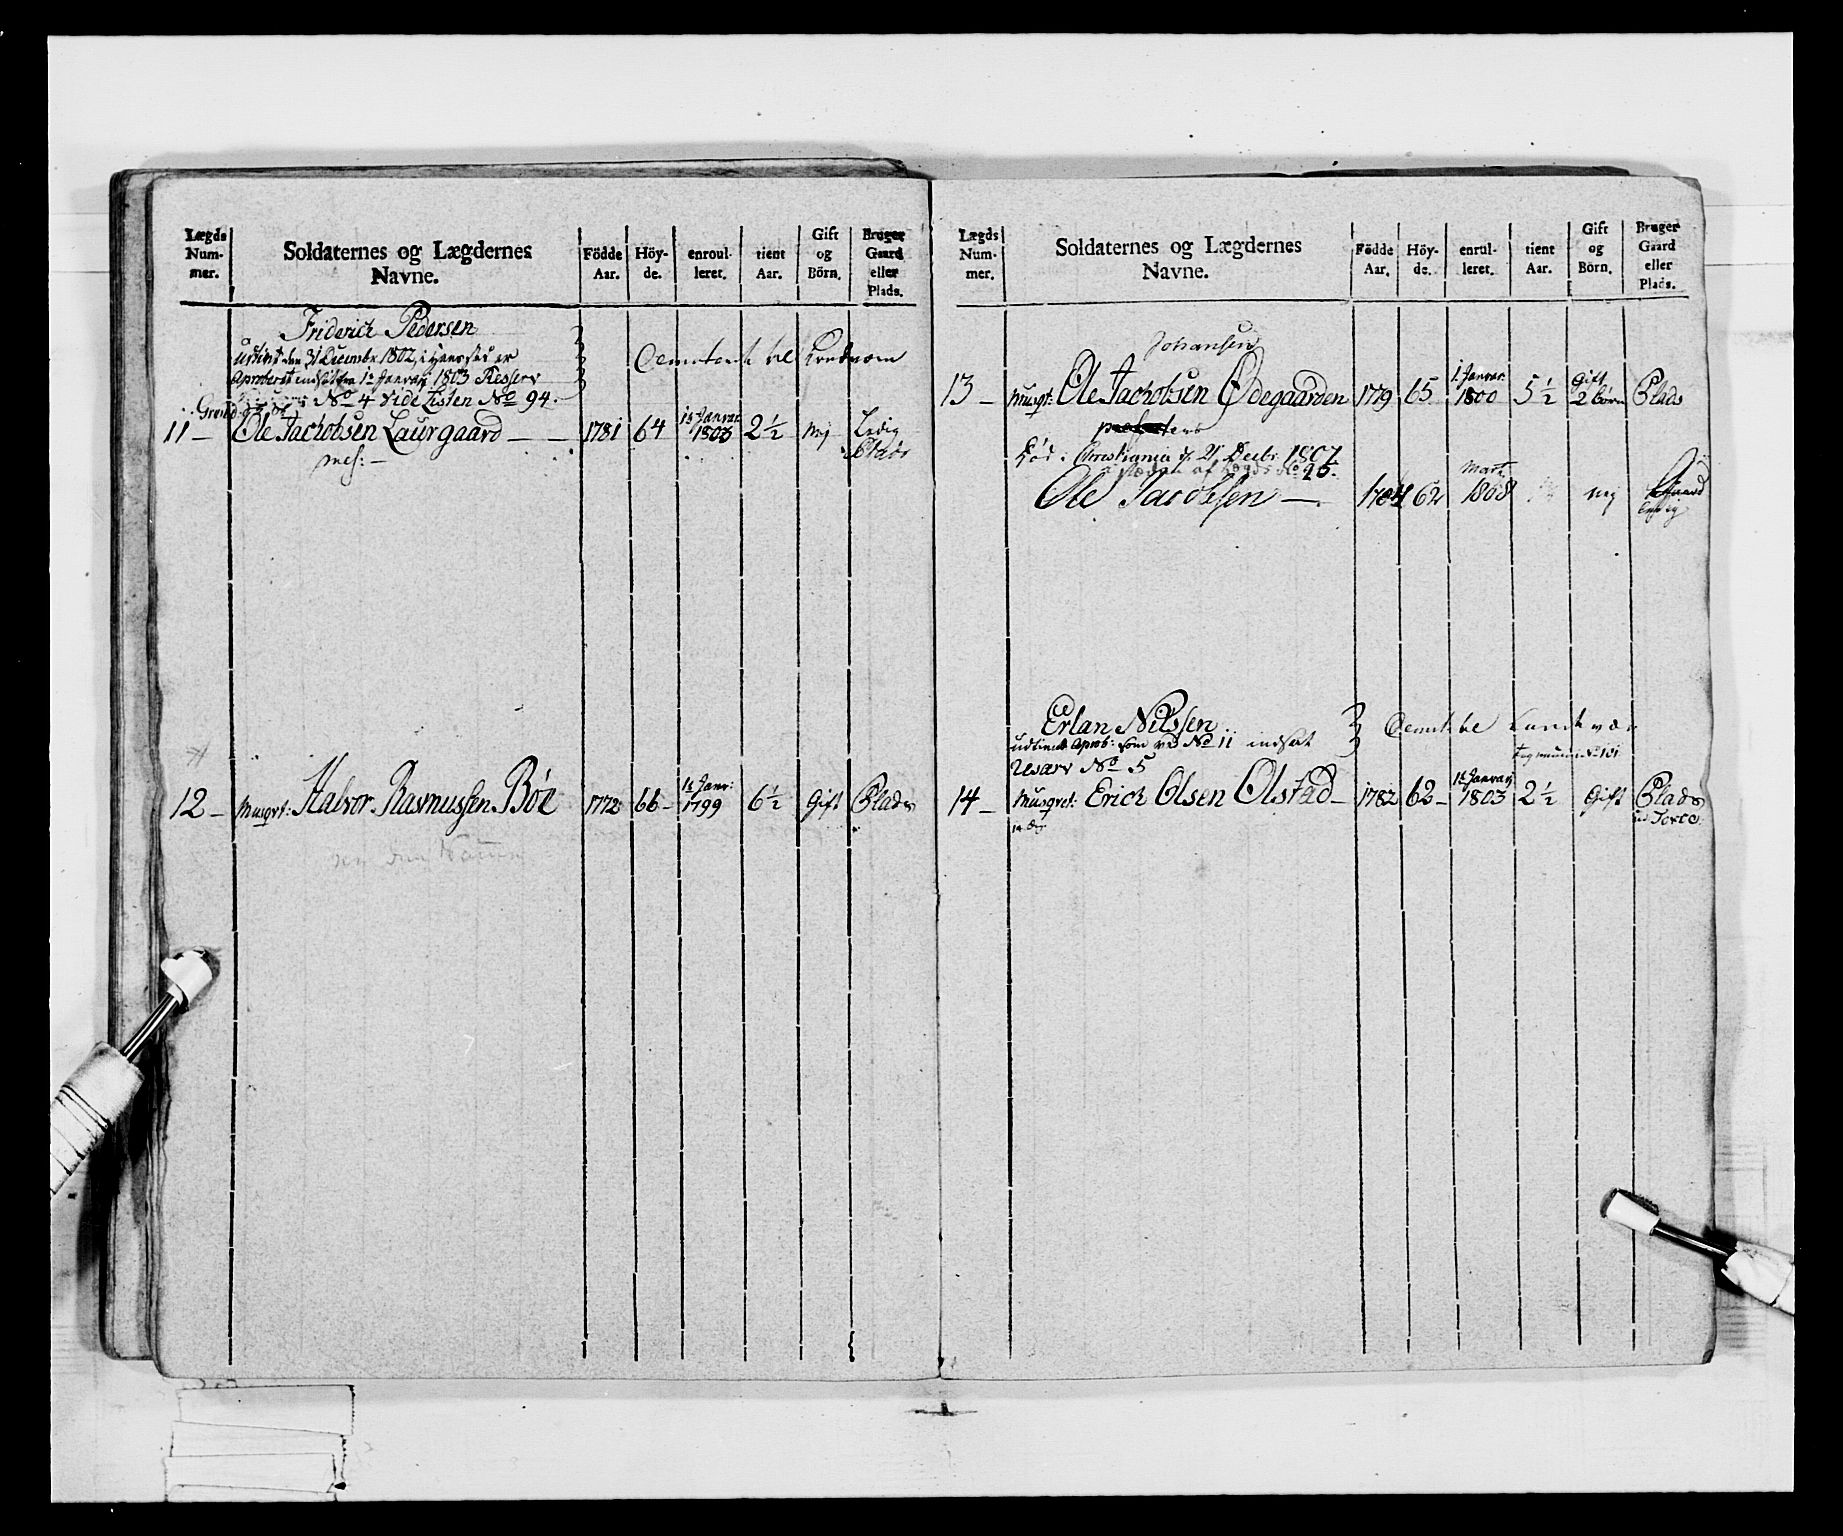 Lægds Num- mer. Soldaternes og Lægdernes Navne. Födde Aar. Höy- de. enroul- leret. tient Aar. Gift og Börn. Bruger Gaard eller Plads.
Friderich Pedersen
den 31 Decembr. 1802, er
Aproberet indsat fra 1te Januarj 1803
No 4 Vide Listen No 94.
11 — Ole Jachobsen Laurgaard — — 1781 64 1te Januar 1803 2½ Nej Ledig Plads
12 — Musqvt: Halvor Rasmussen Böe 1772 66 — 1te Janr: 1799 6½ Gift Plads
Lægds Num- mer. Soldaternes og Lægdernes Navne. Födde Aar. Höy- de. enrul- leret. tient Aar. Gift og Börn. Bruger Gaard eller Plads.
Johansen
13 — Musqt: Ole Jachobsen Ødegaarden 1779 65 1 Januar: 1800 5½ Gift 2 börn Plads
Christiania d. 21 Decbr. 1807
af Lægds No 95.
Ole Jacobsen — 1784 62 Marti 1808 Nej Gaard
Erlan Nilssen
udtient Aprob: som ved No 11 indsat
Reserv No 5
14 — Musqvet: Erich Olsen Olstad — 1782 62 — 1te Januarj 1803 2½ Gift Plads